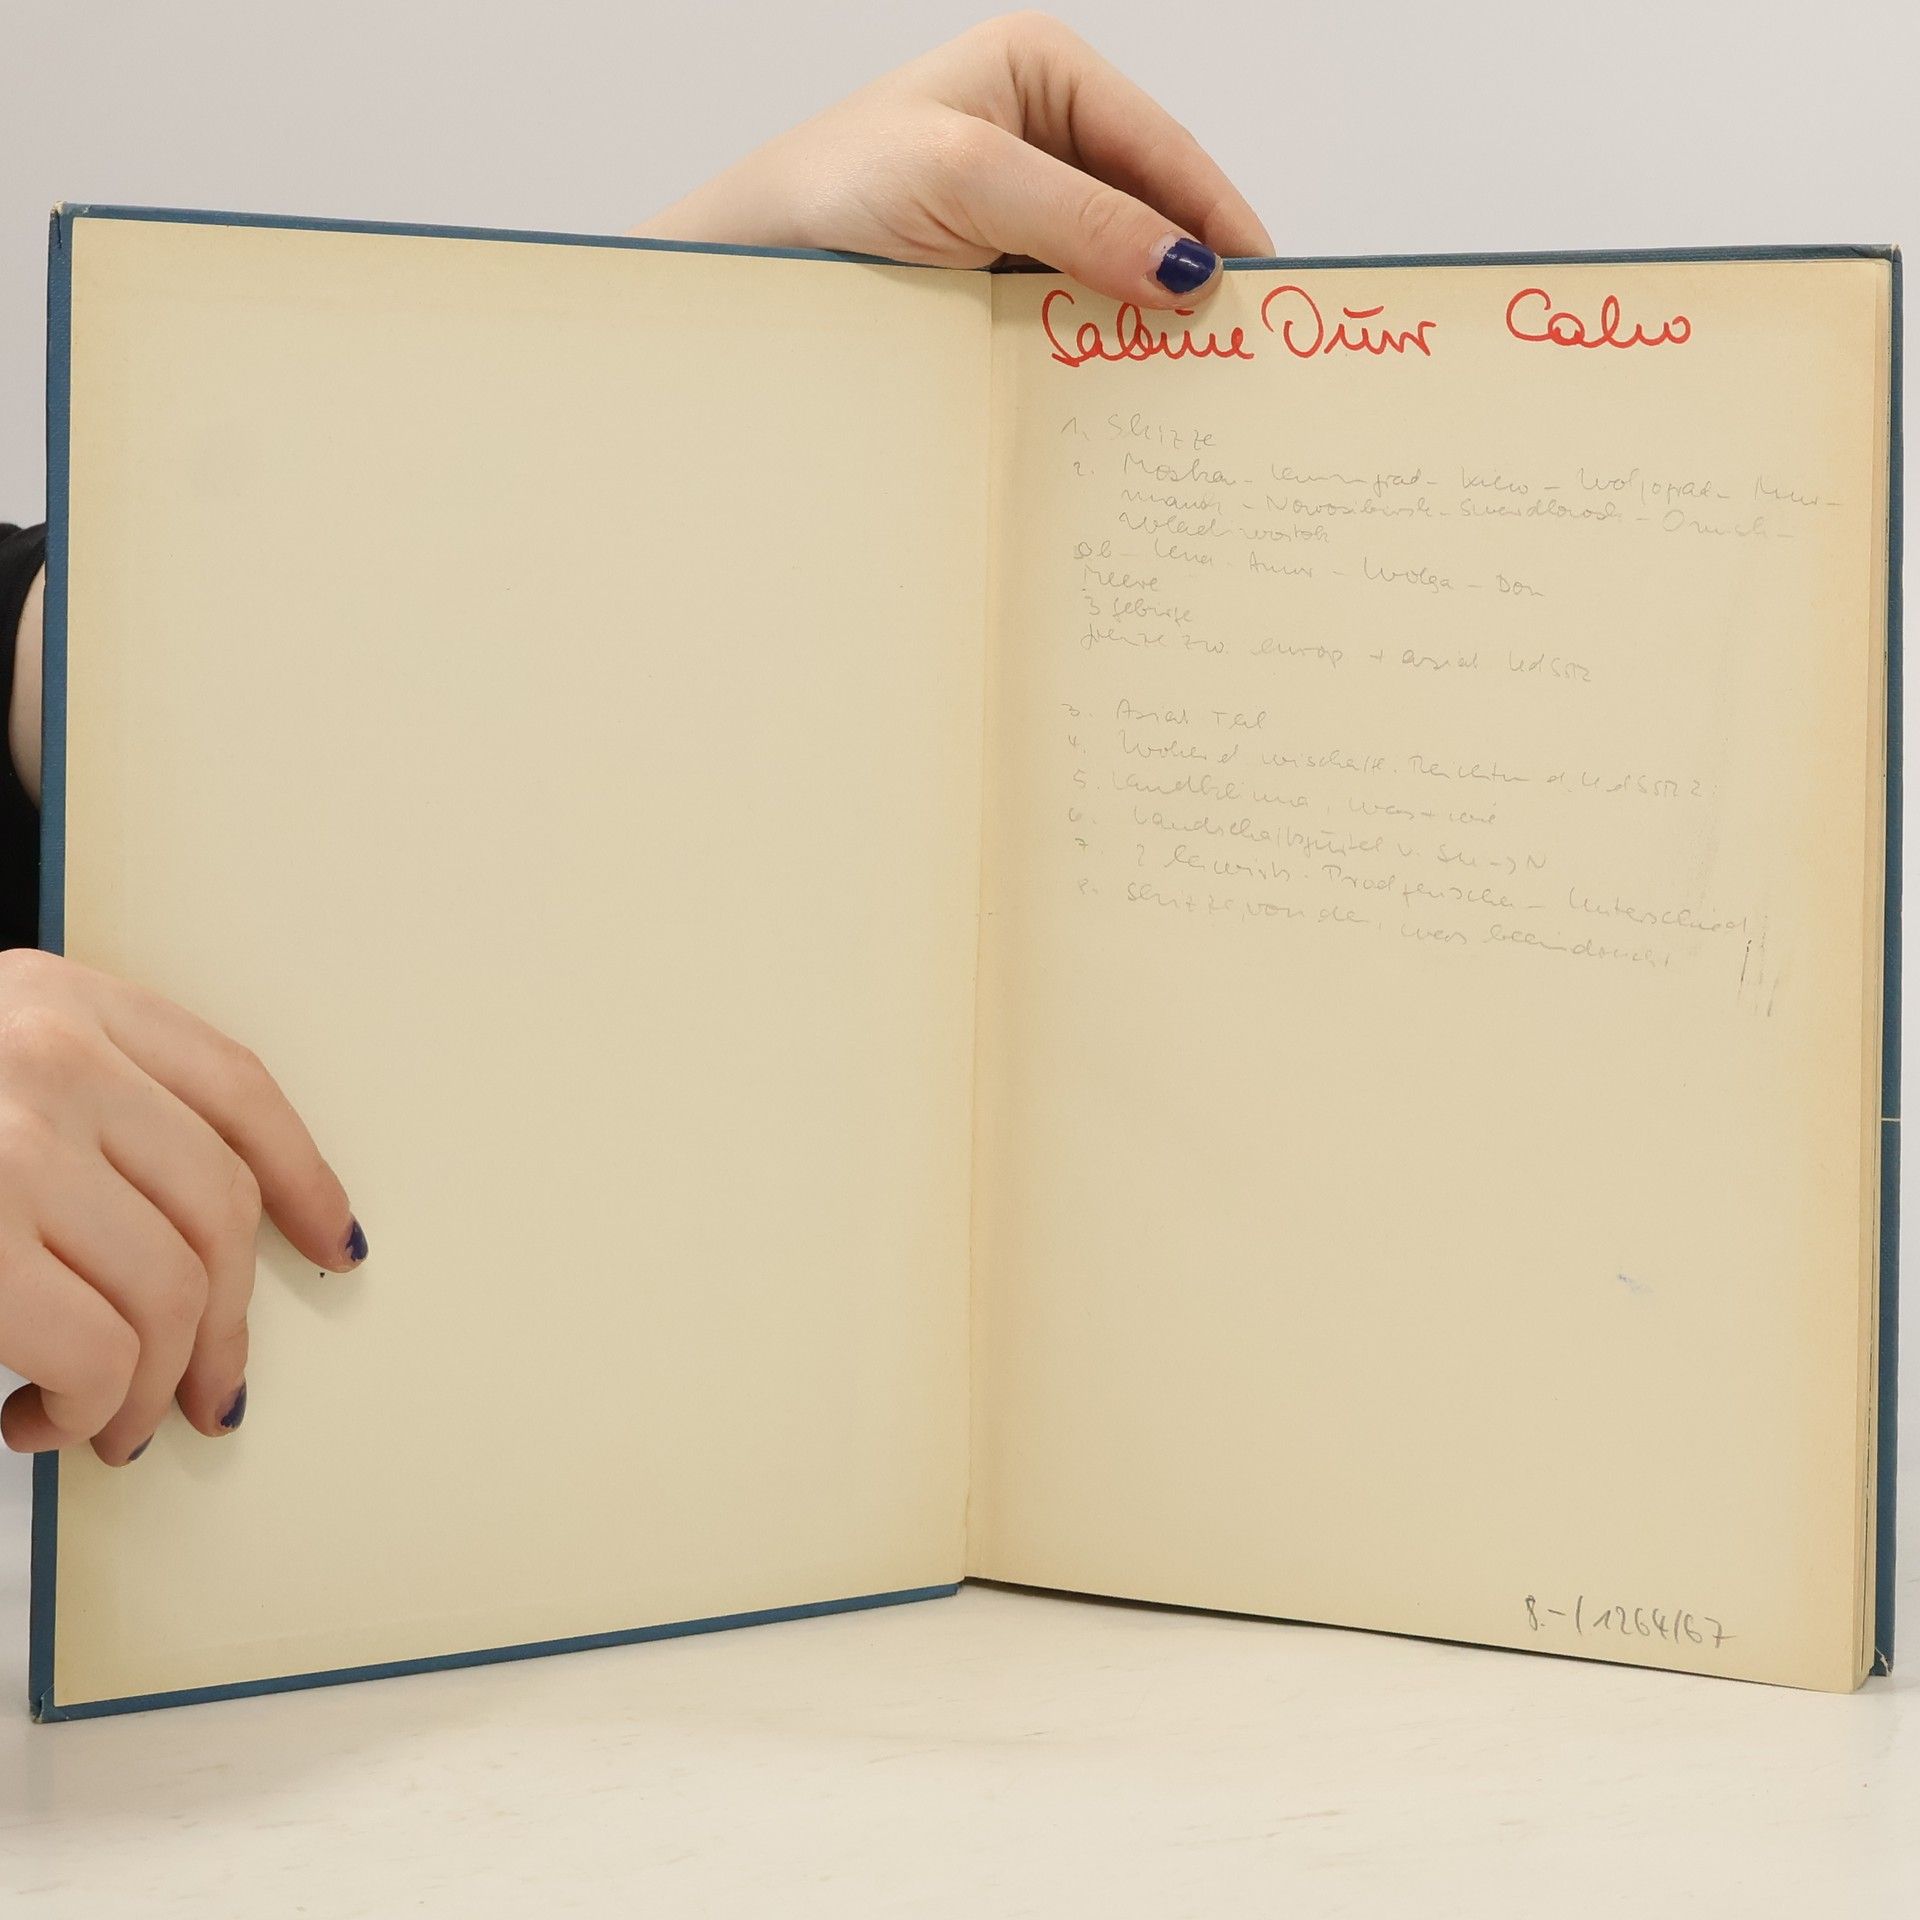 Sabine Dürr Calw
1. Skizze
2. Moskau - Leningrad - Kiew - Wolgograd - Mur-
mansk - Nowosibirsk - Swerdlowsk - Omsk -
Wladiwostok
Ob - Lena - Amur - Wolga - Don
Meere
3 Gebirge
Grenze zw. europ + asiat UdSSR
3. Asiat Teil
4. Woher d. wirschaftl. Reichtum d. UdSSR?
5. Landklima, was + wie
6. Landschaftsgürtel v. SW → N
7. 2 Prod - Unterschied
8. Skizze von der, was beeindruckt
8.-/1264/67